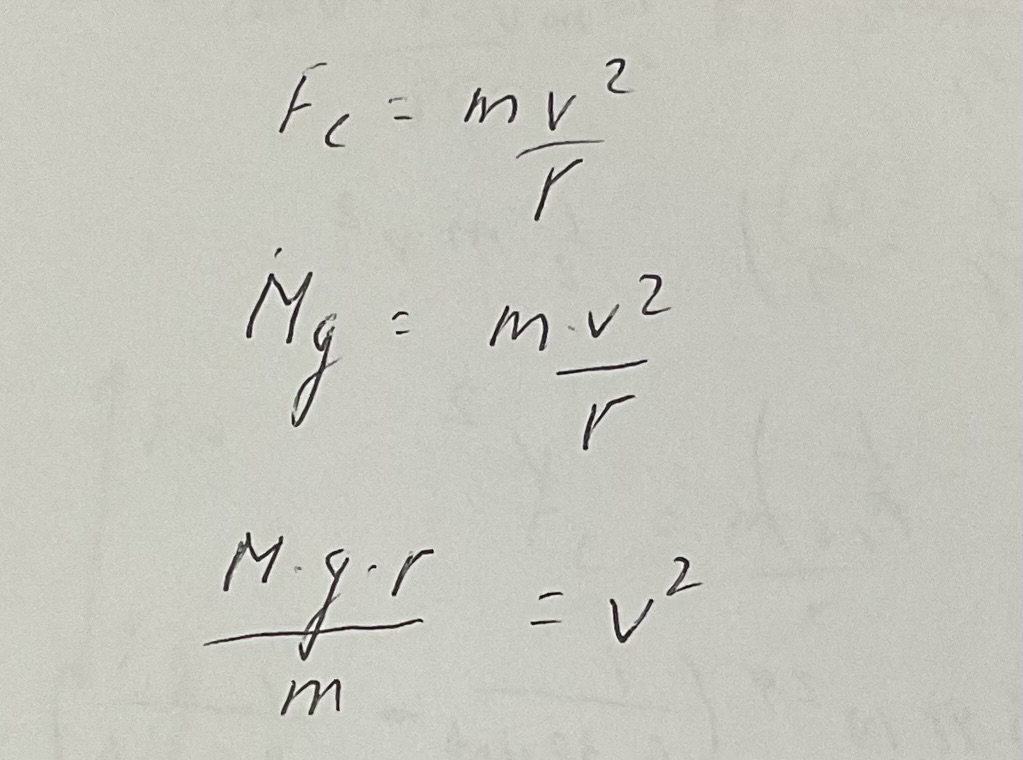 F_c = m v²/r
Mg = m · v²/r
M · g · r / m = v²